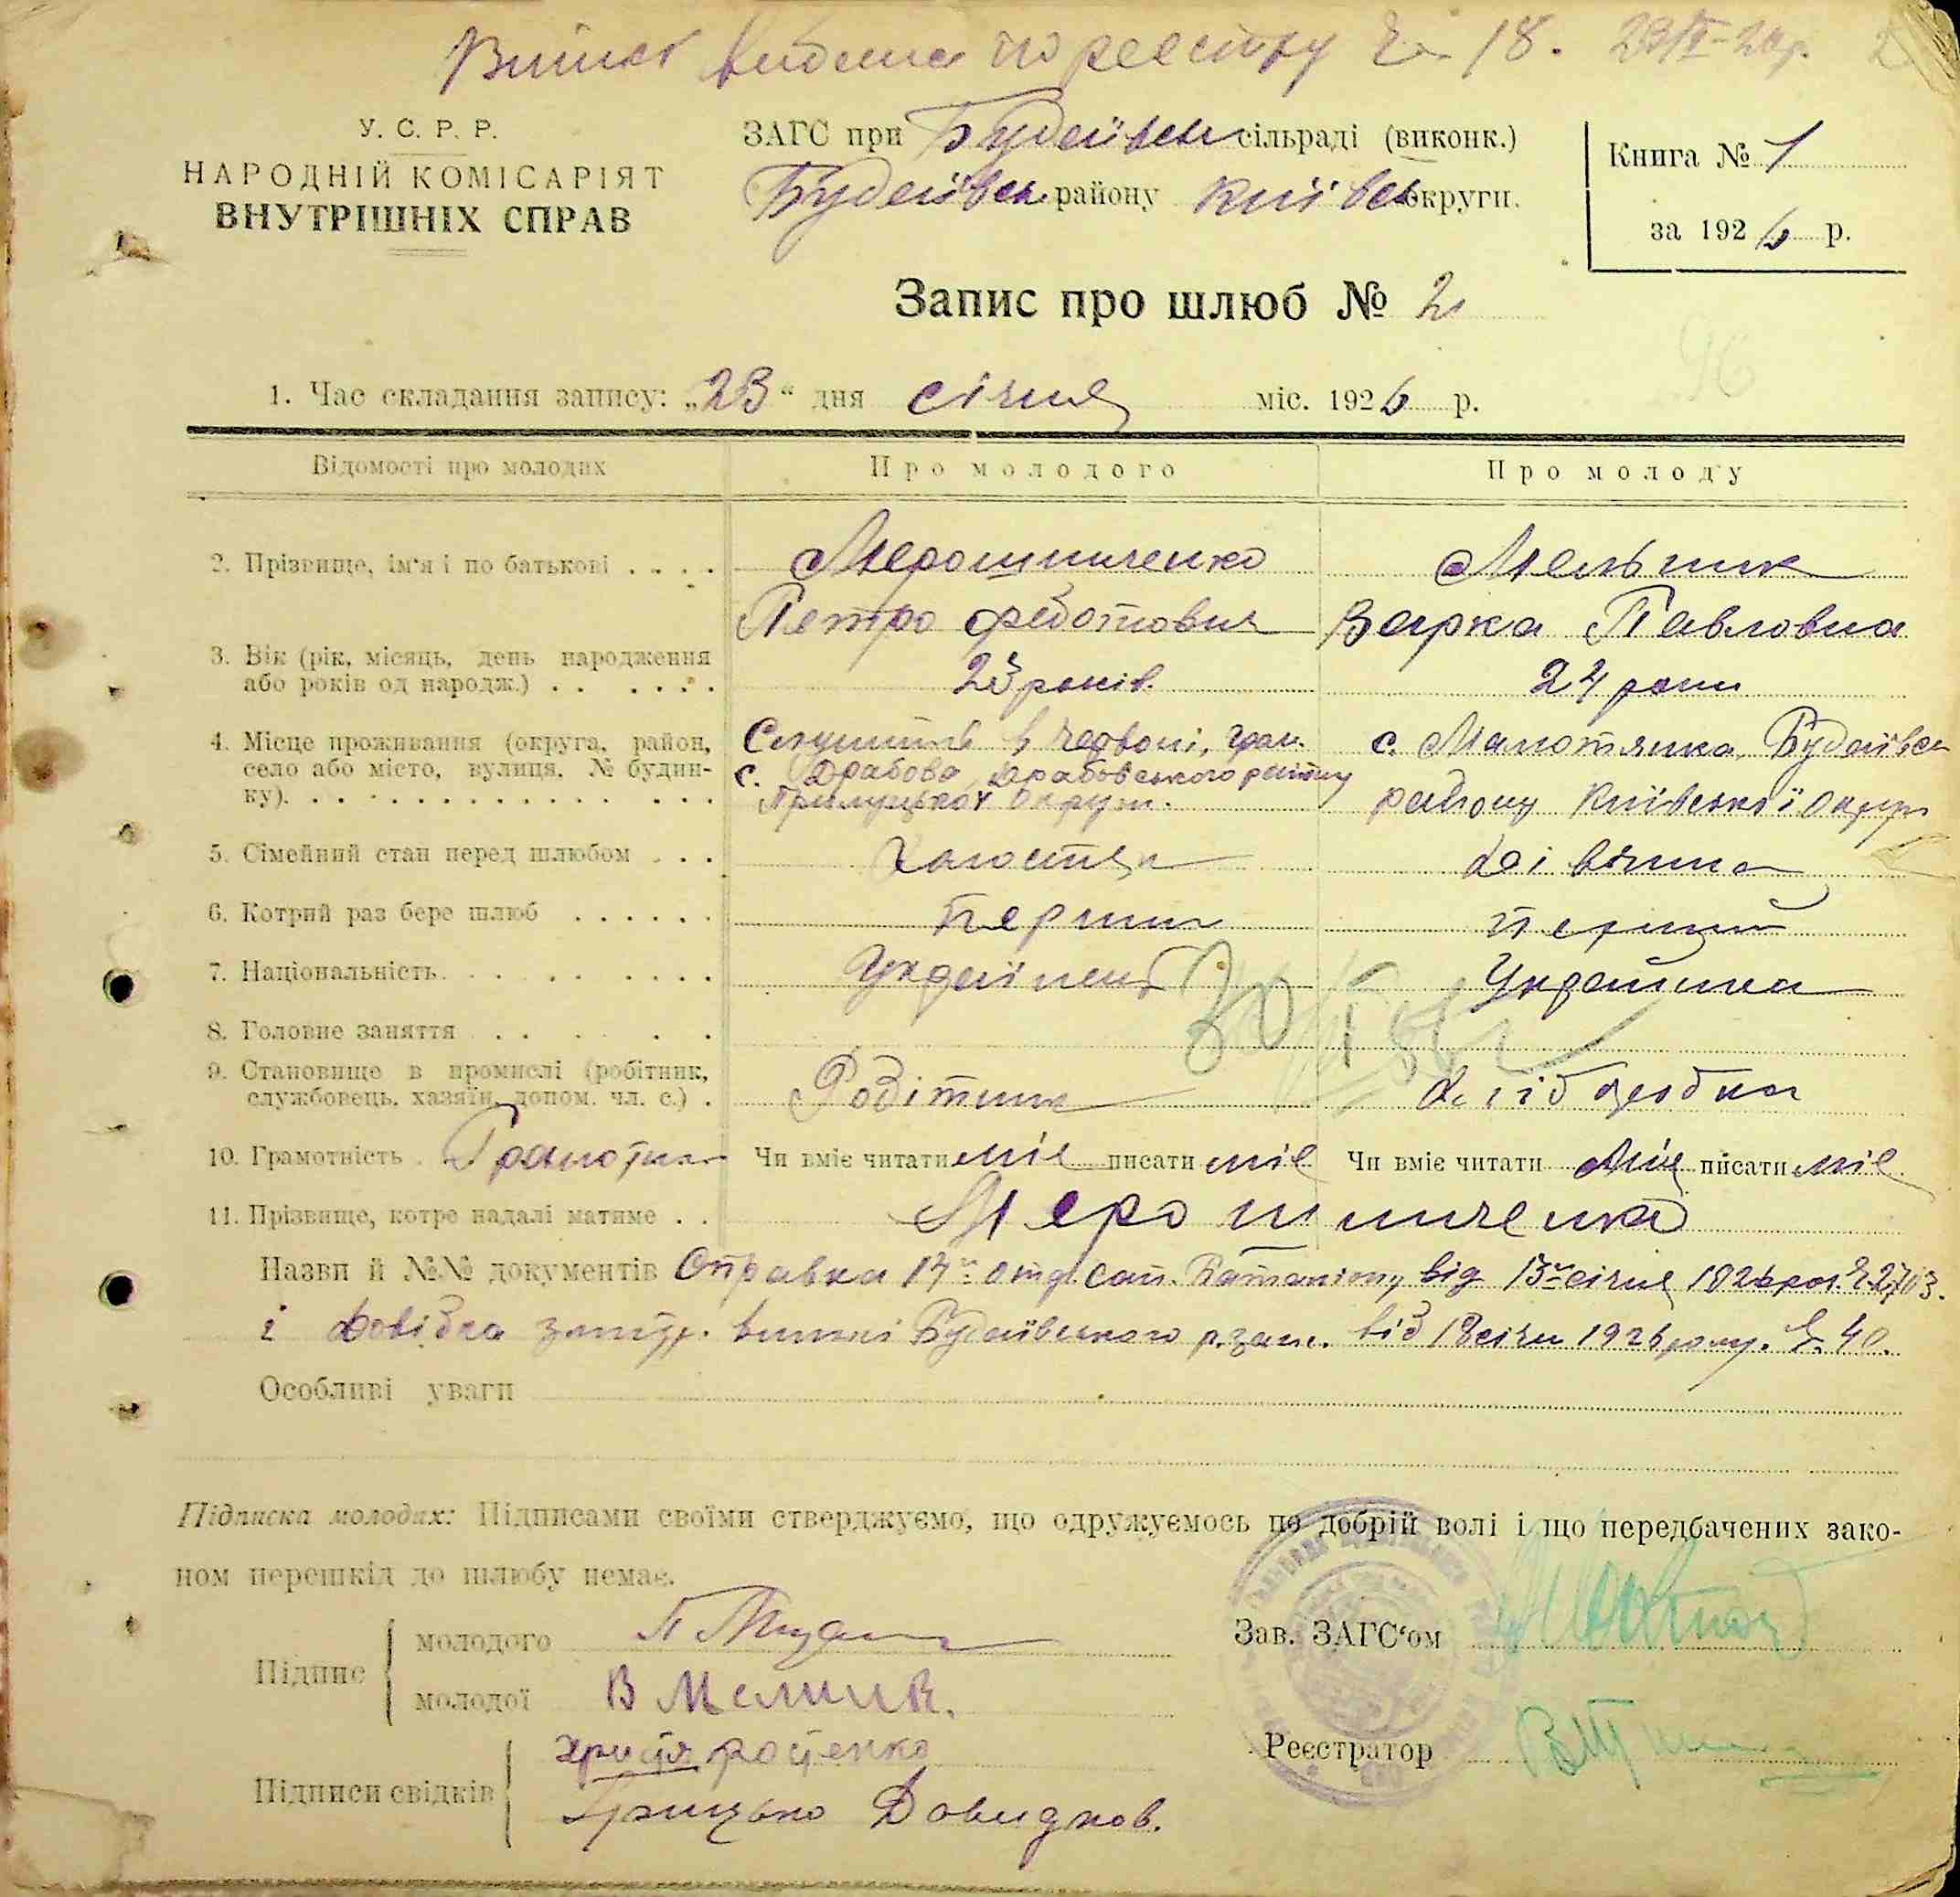 реєстру № 18.
У. С. Р. Р.
НАРОДНІЙ КОМІСАРІЯТ
ВНУТРІШНІХ СПРАВ
ЗАГС при Будаївськ сільраді (виконк.)
Будаївськ району Київськ округи.
Книга № 1
за 1926 р.
Запис про шлюб № 2
1. Час складання запису: „23“ дня січня міс. 1926 р.
Відомості про молодих
Про молодого
Про молоду
2. Прізвище, ім'я і по батькові . . . .
Мерошниченко
Петро Федотович
Мельник
Варка Павловна
3. Вік (рік, місяць, день народження
або років од народж.) . . . . . .
23 років.
24 роки
4. Місце проживання (округа, район,
село або місто, вулиця, № будин-
ку). . . . . . . . . . . . .
с. Драбова Драбовського району
Прилуцької Округи.
с. Малютянка Будаївськ
району Київської Округи
5. Сімейний стан перед шлюбом . . .
Холостяк
Дівчина
6. Котрий раз бере шлюб . . . . . .
Перший
Перший
7. Національність. . . . . . . . . .
Українець
Українка
8. Головне заняття . . . . . .
9. Становище в промислі (робітник,
службовець, хазяїн, допом. чл. с.) .
Робітник
Хліборобка
10. Грамотність .
Чи вміє читати міє писати міє
Чи вміє читати міє писати міє
11. Прізвище, котре надалі матиме . .
Мерошниченко
Назви й №№ документів Справка 17 отд. сап. Баталіону від 13 січня 1926 рок. № 2703.
і Довідка Будаївського від 18 січн 1926 року. № 40.
Особливі уваги
Підписка молодих: Підписами своїми стверджуємо, що одружуємось по добрій волі і що передбачених зако-
ном перешкід до шлюбу немає.
Підпис
молодого
молодої В Мелник.
Зав. ЗАГС‘ом
Реєстратор
Підписи свідків
Христя Роценко
Грицько Довидков.